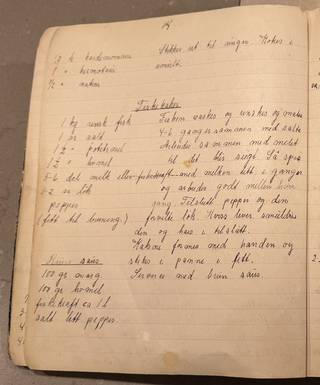 14
g h kardemomme
1 " hornsalt
1/2 " natron
Stikkes ut til ringer. Kokes i
smult.
Fiskekaker
1 kg rensk fisk
1 ss salt
1 1/2 " potetmel
1 1/2 " hvmel
5-6 del melk eller fiskekraft
1-2 ss løk
pepper
(fett til bruning.)
Fisken vaskes og renskes og males
4-6 ganger sammen med saltet
Arbeides sammen med melet
til det blir seigt. Så spes
med melken litt i ganger
og arbeides godt mellem hver
gang. Tilsett pepper og den
finmalte løk.
den og has i tilslutt.
Kakene formes med hånden og
stekes i panne i fett.
Serveres med brun saus.
Brun saus
100 gr marg.
100 gr hvmel
fiskekraft ca 1 l
salt litt pepper.